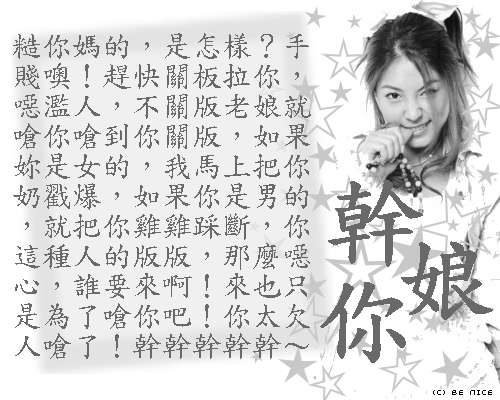 糙你媽的，是怎樣？手
賤噢！趕快關板拉你，
噁濫人，不關版老娘就
嗆你嗆到你關版，如果
妳是女的，我馬上把你
奶戳爆，如果你是男的
，就把你雞雞踩斷，你
這種人的版版，那麼噁
心，誰要來啊！來也只
是為了嗆你吧！你太欠
人嗆了！幹幹幹幹幹～
幹
你
娘
(C) BE NICE